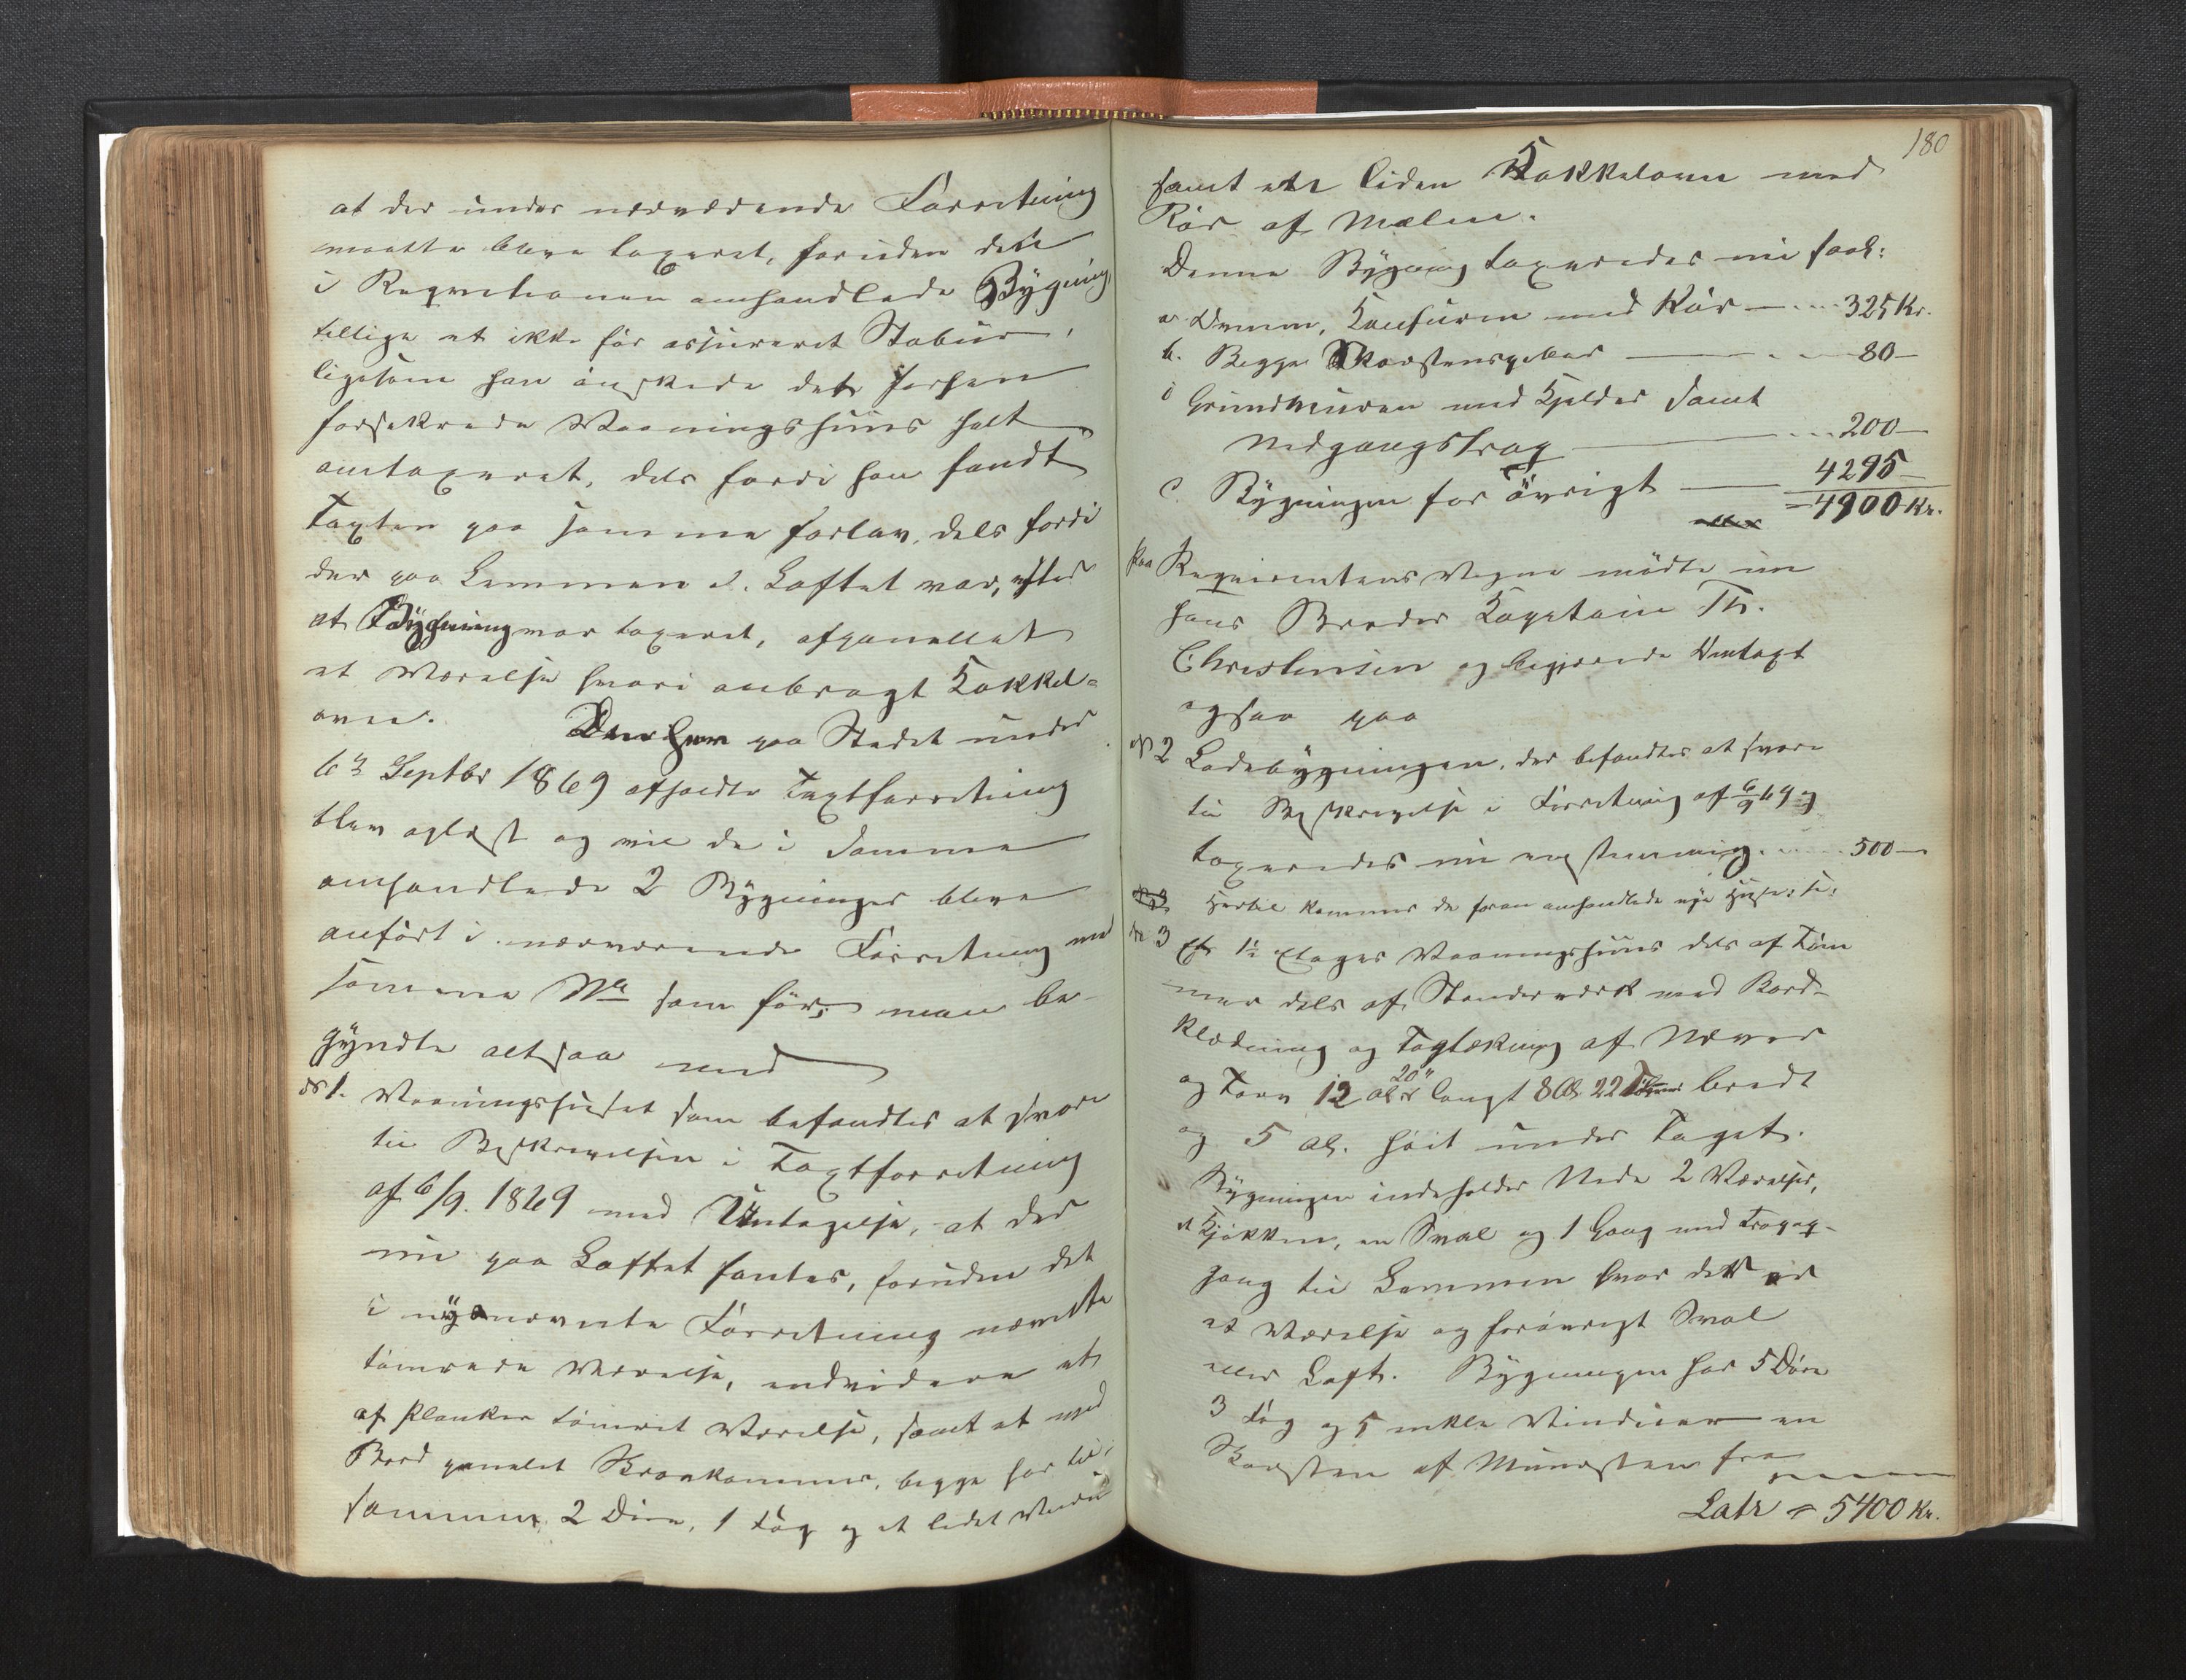 at der under nærværende Forretning
maatte blive taxeret, foruden det
i Requisitionen omhandlede Bygning,
tillige et ikke før assureret Stabur,
ligesom han ønskede det forhen
forsikrede Vaaningshuus helt
omtaxeret, dels fordi han fandt
Taxten paa samme for lav, dels fordi
der paa Lemmen d. Loftet var, efter
at Bygning var taxeret, afpanellet
et Værelse hvori anbragt Kakkel-
ovn. Den paa Stedet under
6te Septbr 1869 afholdte Taxtforretning
blev oplæst og vil de i samme
omhandlede 2 Bygninger blive
anført i nærværende Forretning med
samme No som før; man be-
gyndte altsaa med
No 1. Vaaningshuset som befandtes at svare
til Beskrivelsen i Taxtforretning
af 6/9. 1869 med Undtagelse, at der
nu paa Loftet fantes, foruden det
i nysnævnte Forretning nævnte
tømrede Værelse, endvidere et
af Planker tømret Værelse, samt et med
Bord panelet Kammer, begge har til-
sammen 2 Døre, 1 Fag og et lidet Vindu
180
samt en liden Kakkelovn med
Rør af Malm.
Denne Bygning taxeredes nu saal:
a. Ovnen, Komfuren med Rør — 325 Kr.
b. Begge Skorstenspiber — 80 —
c Grundmuren med Kjelder samt
Nedgangstrap — 200 —
c. Bygningen for øvrigt — 4295 —
= 4900 Kr.
Paa Requirentens Vegne mødte nu
hans Broder Kaptain Th.
Christensen og begjærede Omtaxt
ogsaa paa
No 2 Ladebygningen, der befandtes at svare
til Beskrivelse i Forretning af 6/9 69 og
taxeredes nu enstemmig — 500 —
Hertil kommer de foran omhandlede nye Huse: se:
No 3 Et 1½ Etages Vaaningshuus dels af Tøm
mer dels af Standerværk med Bord-
klædning og Tagtækning af Næver
og Torv 12 Al 20" langt 8 Al. 22 Tommer bredt
og 5 Al. høit under Taget.
Bygningen indeholder Nede 2 Værelser,
et Kjøkken, en Sval og 1 Gang med Trapop-
gang til Lemmen hvor der er
et Værelse og forøvrigt Sval
eller Loft. Bygningen har 5 Døre
3 Fag og 5 enkle Vinduer en
Skorsten af Mursten fra
Latr = 5400 Kr.